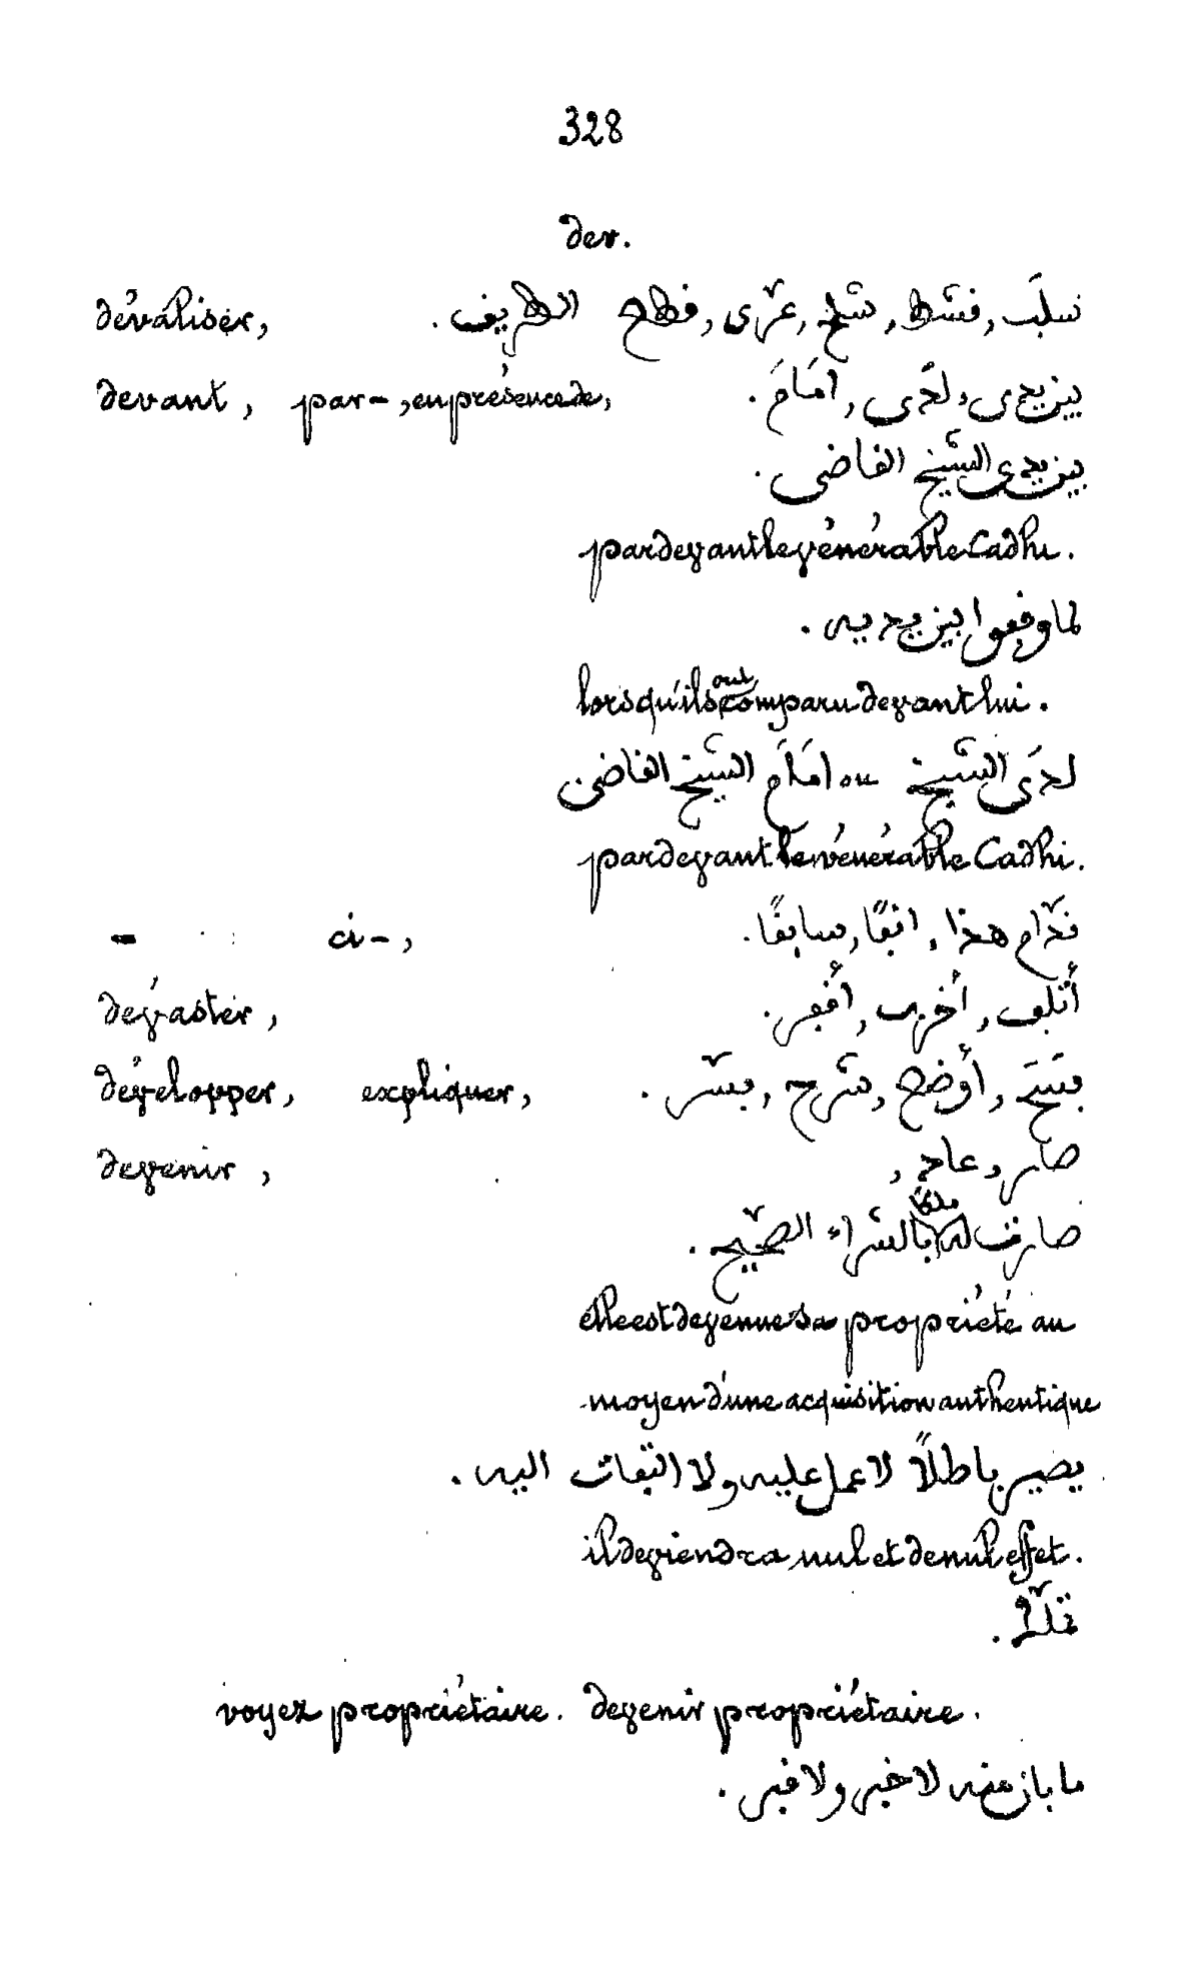 328
dev.
dévaliser, سلّب, فشّط, شلّح, عرّى, قطع الطريق.
devant, par-, en présence de, بين يدى, لدى, امَامَ.
بين يدى الشيخ القاضى.
par devant le vénérable Cadhi.
لما وقفوا بين يديه.
lorsqu'ils ont comparu devant lui.
لدَى الشيخ ou امَامَ الشيخ القاضى
par devant le vénérable Cadhi.
- ci-, قدّام هذا, انفًا, سابقًا.
dévaster, أتلف, أخرب, أقفر.
développer, expliquer, أوضح, شرح, فسّر.
devenir, صار, عاد,
صارت له ملكا بالشراء الصّحيح.
elle est devenue sa propriété au
moyen d'une acquisition authentique
يصير باطلاً لا عمل عليه ولا التفات اليه.
il deviendra nul et de nul effet.
تملّك.
voyez propriétaire. devenir propriétaire.
ما بان منه لا خبر ولا